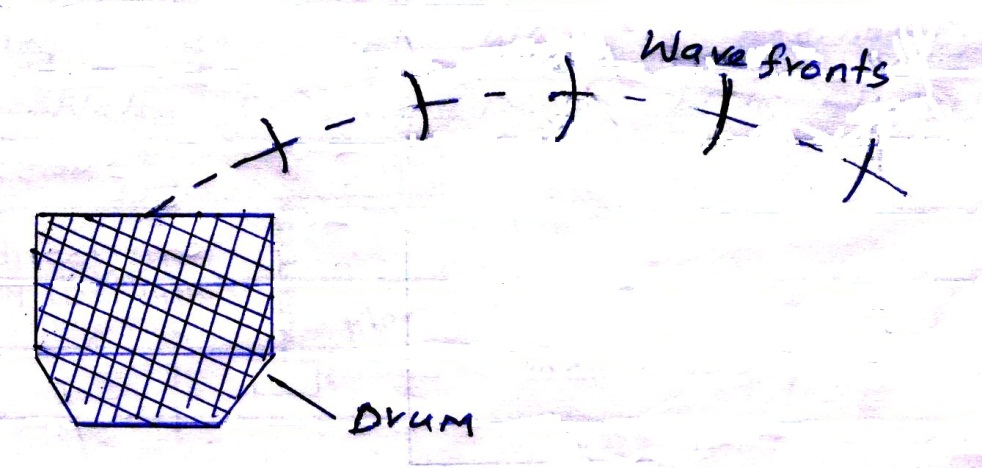 Wave fronts
Drum